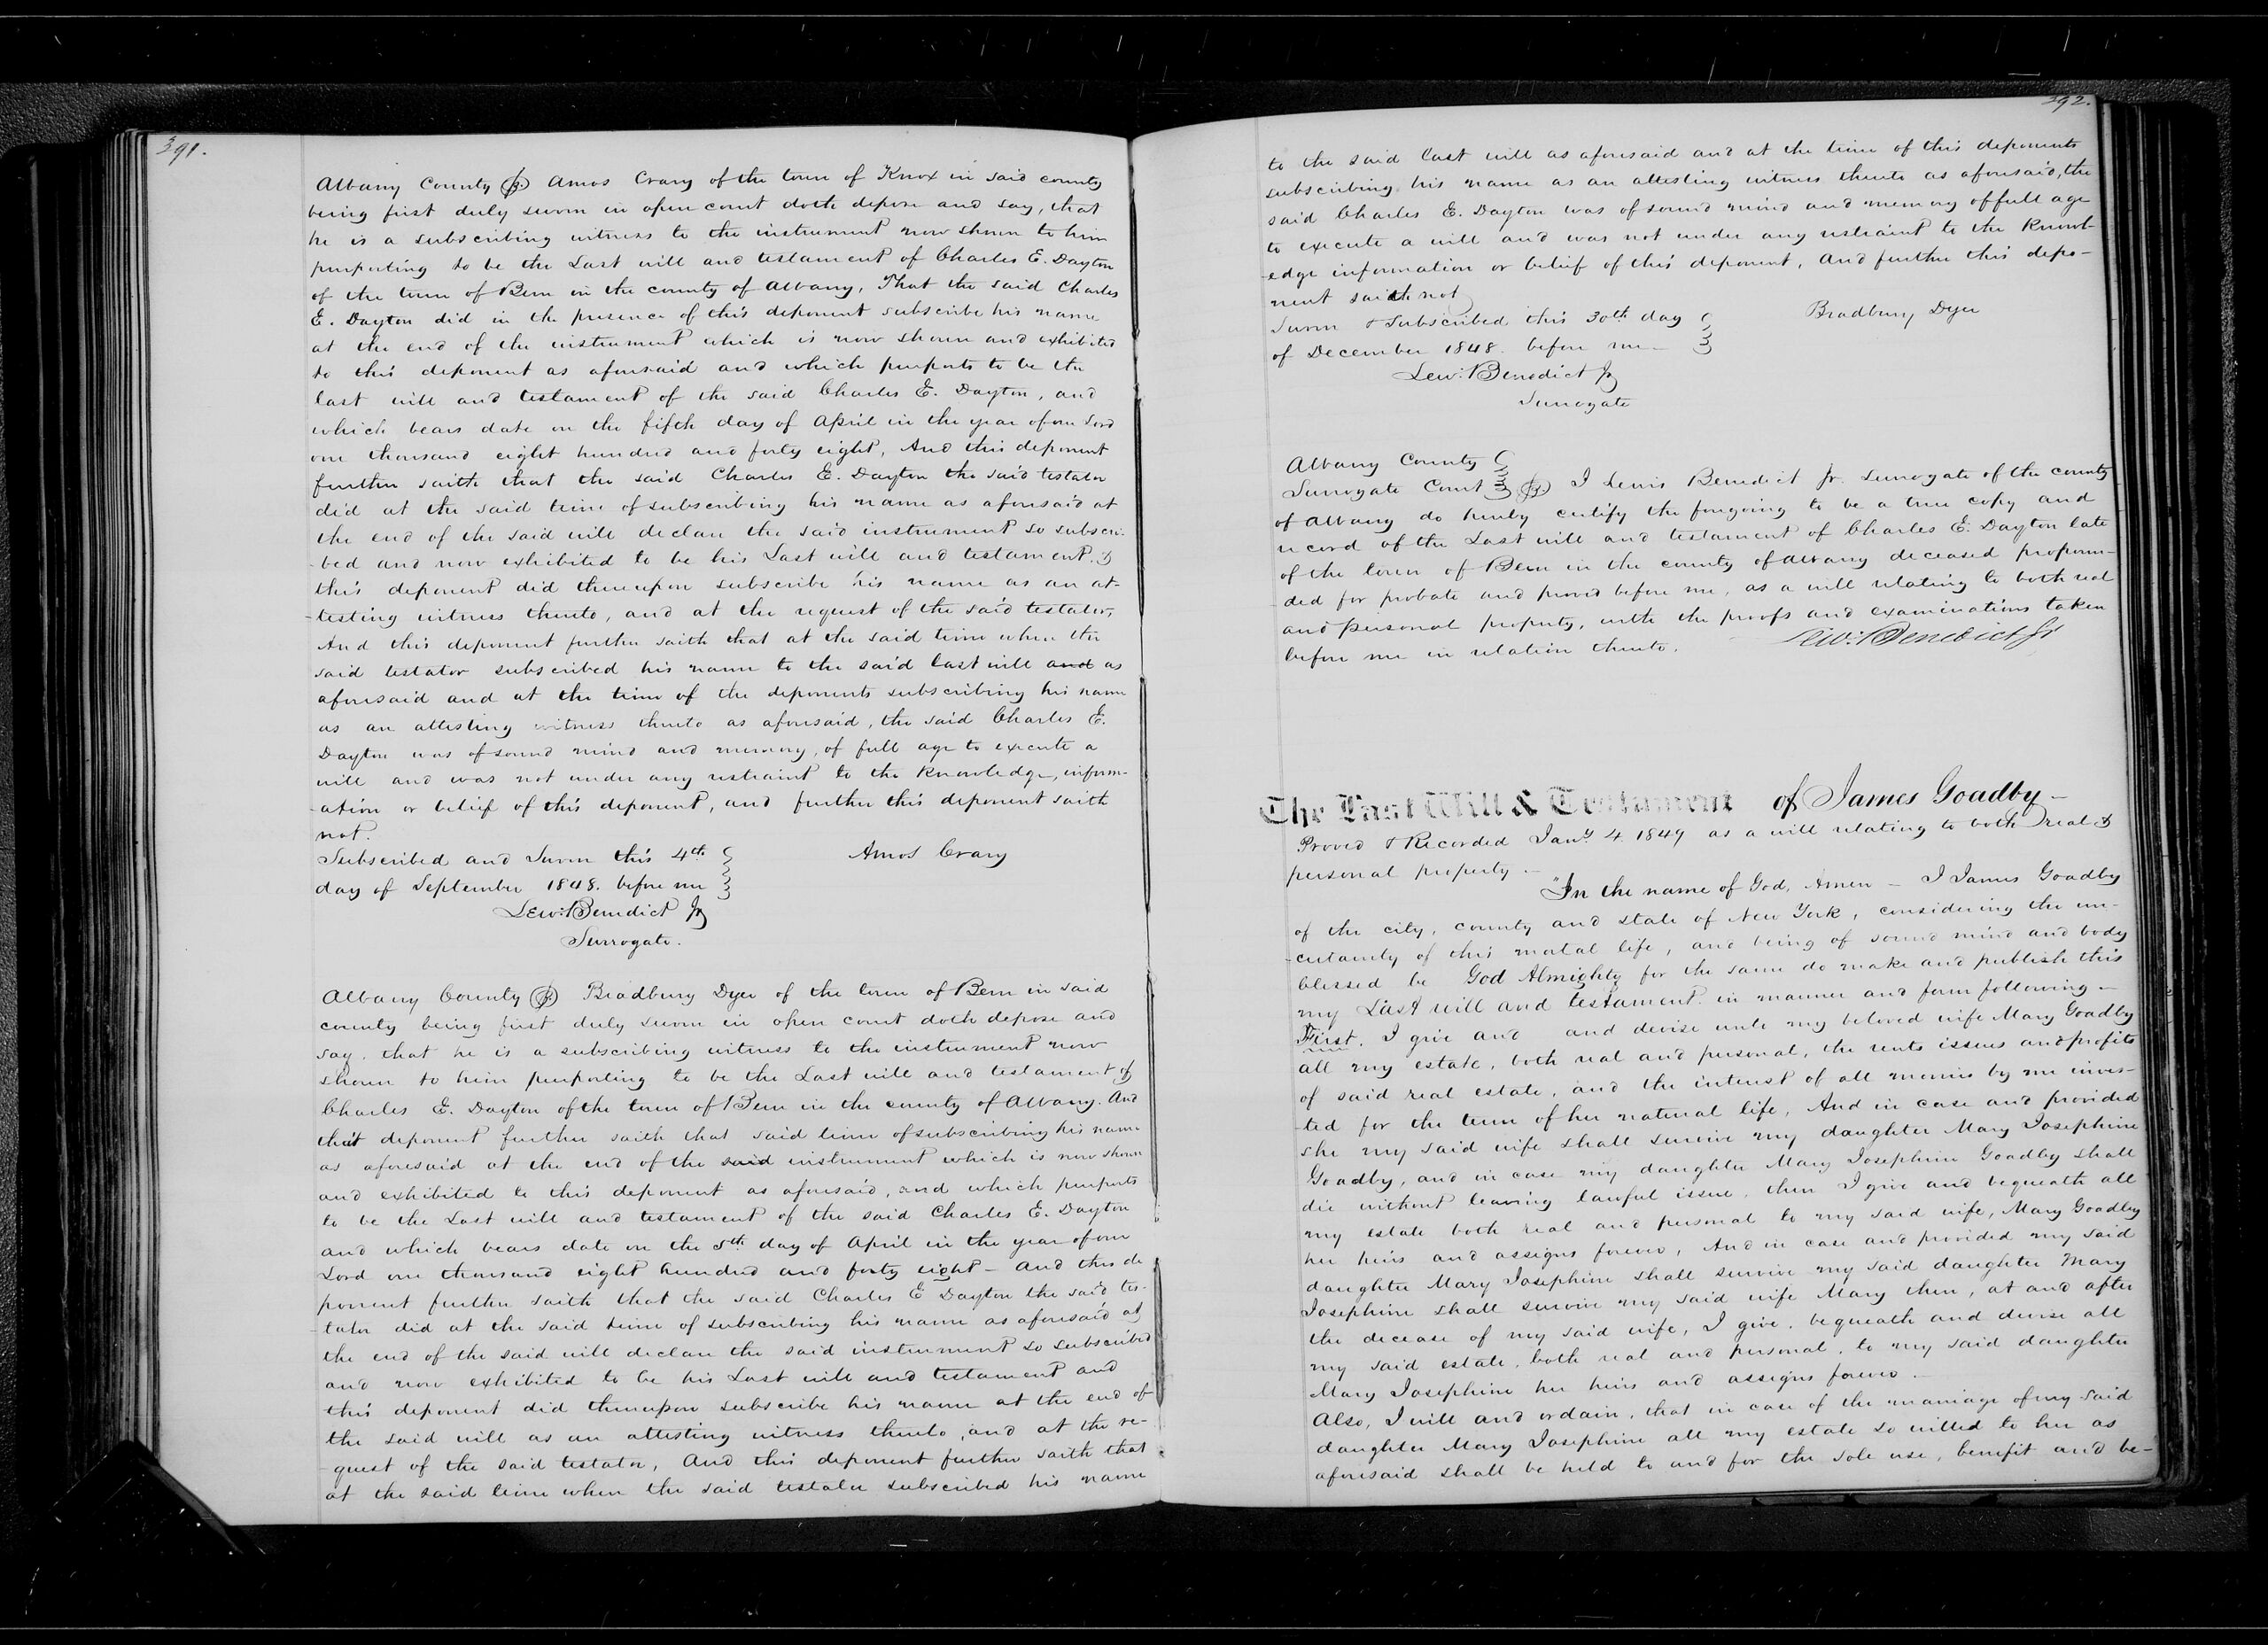 391.
Albany County ss) Amos Crary of the town of Knox in said county
being first duly sworn in open court doth depose and say, that
he is a subscribing witness to the instrument now shown to him
purporting to be the Last will and testament of Charles E. Dayton
of the town of Bern in the county of Albany, That the said Charles
E. Dayton did in the presence of this deponent subscribe his name
at the end of the instrument which is now shown and exhibited
to this deponent as aforesaid and which purports to be the
last will and testament of the said Charles E. Dayton, and
which bears date on the fifth day of April in the year of our Lord
one thousand eight hundred and forty eight, And this deponent
further saith that the said Charles E. Dayton the said testator
did at the said time of subscribing his name as aforesaid at
the end of the said will declare the said instrument so subscri-
-bed and now exhibited to be his Last will and testament. &
this deponent did thereupon subscribe his name as an at-
-testing witness thereto, and at the request of the said testator,
And this deponent further saith that at the said time when the
said testator subscribed his name to the said last will and as
aforesaid and at the time of the deponents subscribing his name
as an attesting witness thereto as aforesaid, the said Charles E.
Dayton was of sound mind and memory, of full age to execute a
will and was not under any restraint to the knowledge, inform-
-ation or belief of this deponent, and further this deponent saith
not.
Subscribed and Sworn this 4th Amos Crary
day of September 1848. before me
Lew: Benedict Jr
Surrogate.
Albany County ss) Bradbury Dyer of the town of Bern in said
county being first duly sworn in open court doth depose and
say. that he is a subscribing witness to the instrument now
shown to him purporting to be the Last will and testament of
Charles E. Dayton of the town of Bern in the county of Albany. And
that deponent further saith that said time of subscribing his name
as aforesaid at the end of the said instrument which is now shown
and exhibited to this deponent as aforesaid, and which purports
to be the Last will and testament of the said Charles E. Dayton
and which bears date on the 5th day of April in the year of our
Lord one thousand eight hundred and forty eight - And this de
ponent further saith that the said Charles E Dayton the said tes-
-tator did at the said time of subscribing his name as aforesaid at
the end of the said will declare the said instrument so subscribed
and now exhibited to be his Last will and testament and
this deponent did thereupon subscribe his name at the end of
the said will as an attesting witness thereto, and at the re-
-quest of the said testator, And this deponent further saith that
at the said time when the said testator subscribed his name
392.
to the said last will as aforesaid and at the time of this deponents
subscribing his name as an attesting witness thereto as aforesaid, the
said Charles E. Dayton was of sound mind and memory of full age
to execute a will and was not under any restraint to the knowl-
-edge information or belief of this deponent, And further this depo-
nent saith not
Sworn & Subscribed this 30th day Bradbury Dyer
of December 1848. before me -
Lew: Benedict Jr
Surrogate
Albany County
Surrogate Court ss) I Lewis Benedict Jr. surrogate of the county
of Albany do hereby certify the foregoing to be a true copy and
record of the Last will and testament of Charles E. Dayton late
of the town of Bern in the county of Albany deceased propoun-
ded for probate and proved before me, as a will relating to both real
and personal property, with the proofs and examinations taken
before me in relation thereto. Lew: Benedict Jr
The Last Will & Testament of James Goadby -
Proved & Recorded Jany 4. 1849 as a will relating to both real &
personal property -
"In the name of God, Amen - I James Goadby
of the city, county and state of New York, considering the un-
-certainty of this mortal life, and being of sound mind and body
blessed be God Almighty for the same do make and publish this
my Last will and testament. in manner and form following -
First. I give and and devise unto my beloved wife Mary Goadby
all my estate, both real and personal, the rents issues and profits
of said real estate, and the interest of all monies by me inves-
-ted for the term of her natural life, And in case and provided
she my said wife shall survive my daughter Mary Josephine
Goadby, and in case my daughter Mary Josephine Goadby shall
die without leaving lawful issue, then I give and bequeath all
my estate both real and personal to my said wife, Mary Goadby
her heirs and assigns forever, And in case and provided my said
daughter Mary Josephine shall survive my said daughter Mary
Josephine shall survive my said wife Mary then, at and after
the decease of my said wife, I give, bequeath and devise all
my said estate, both real and personal, to my said daughter
Mary Josephine her heirs and assigns forever -
Also, I will and ordain, that in case of the marriage of my said
daughter Mary Josephine all my estate so willed to her as
aforesaid shall be held to and for the sole use, benefit and be-